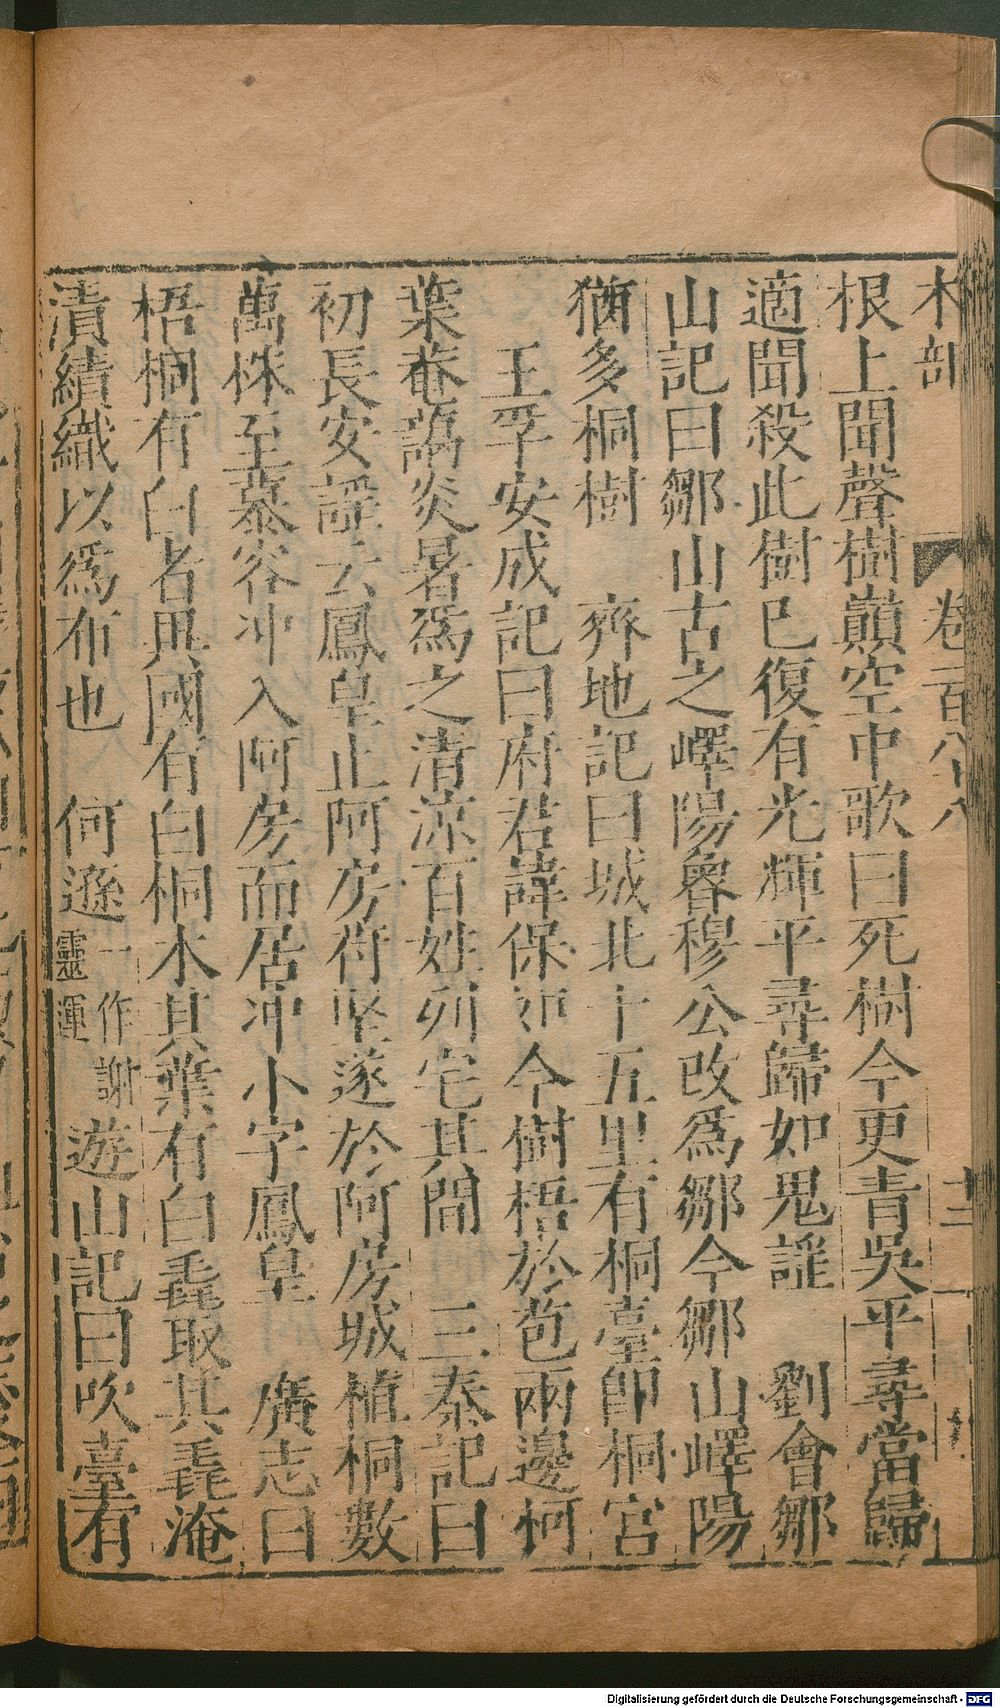 木部 卷一百八十八 十三
根上聞聲樹巔空中歌曰死樹今更青吳平尋當歸
適聞殺此樹已復有光輝平尋歸如鬼謡 劉會鄒
山記曰鄒山古之嶧陽魯穆公改爲鄒今鄒山嶧陽
猶多桐樹 齊地記曰城北十五里有桐臺即桐宫
王孚安成記曰府君諱保 今樹梧於苞兩邊柯
葉菴藹炎暑爲之清凉百姓列宅其間 三秦記曰
初長安謡云鳳皇止阿房苻堅遂於阿房城植桐數
萬株至慕容冲入阿房而居冲小字鳳皇 廣志曰
梧桐有白者㒷國有白桐木其葉有白毳取其毳淹
漬績織以爲布也 何遜一作謝靈運遊山記曰吹臺有
Digitalisierung gefördert durch die Deutsche Forschungsgemeinschaft - DFG